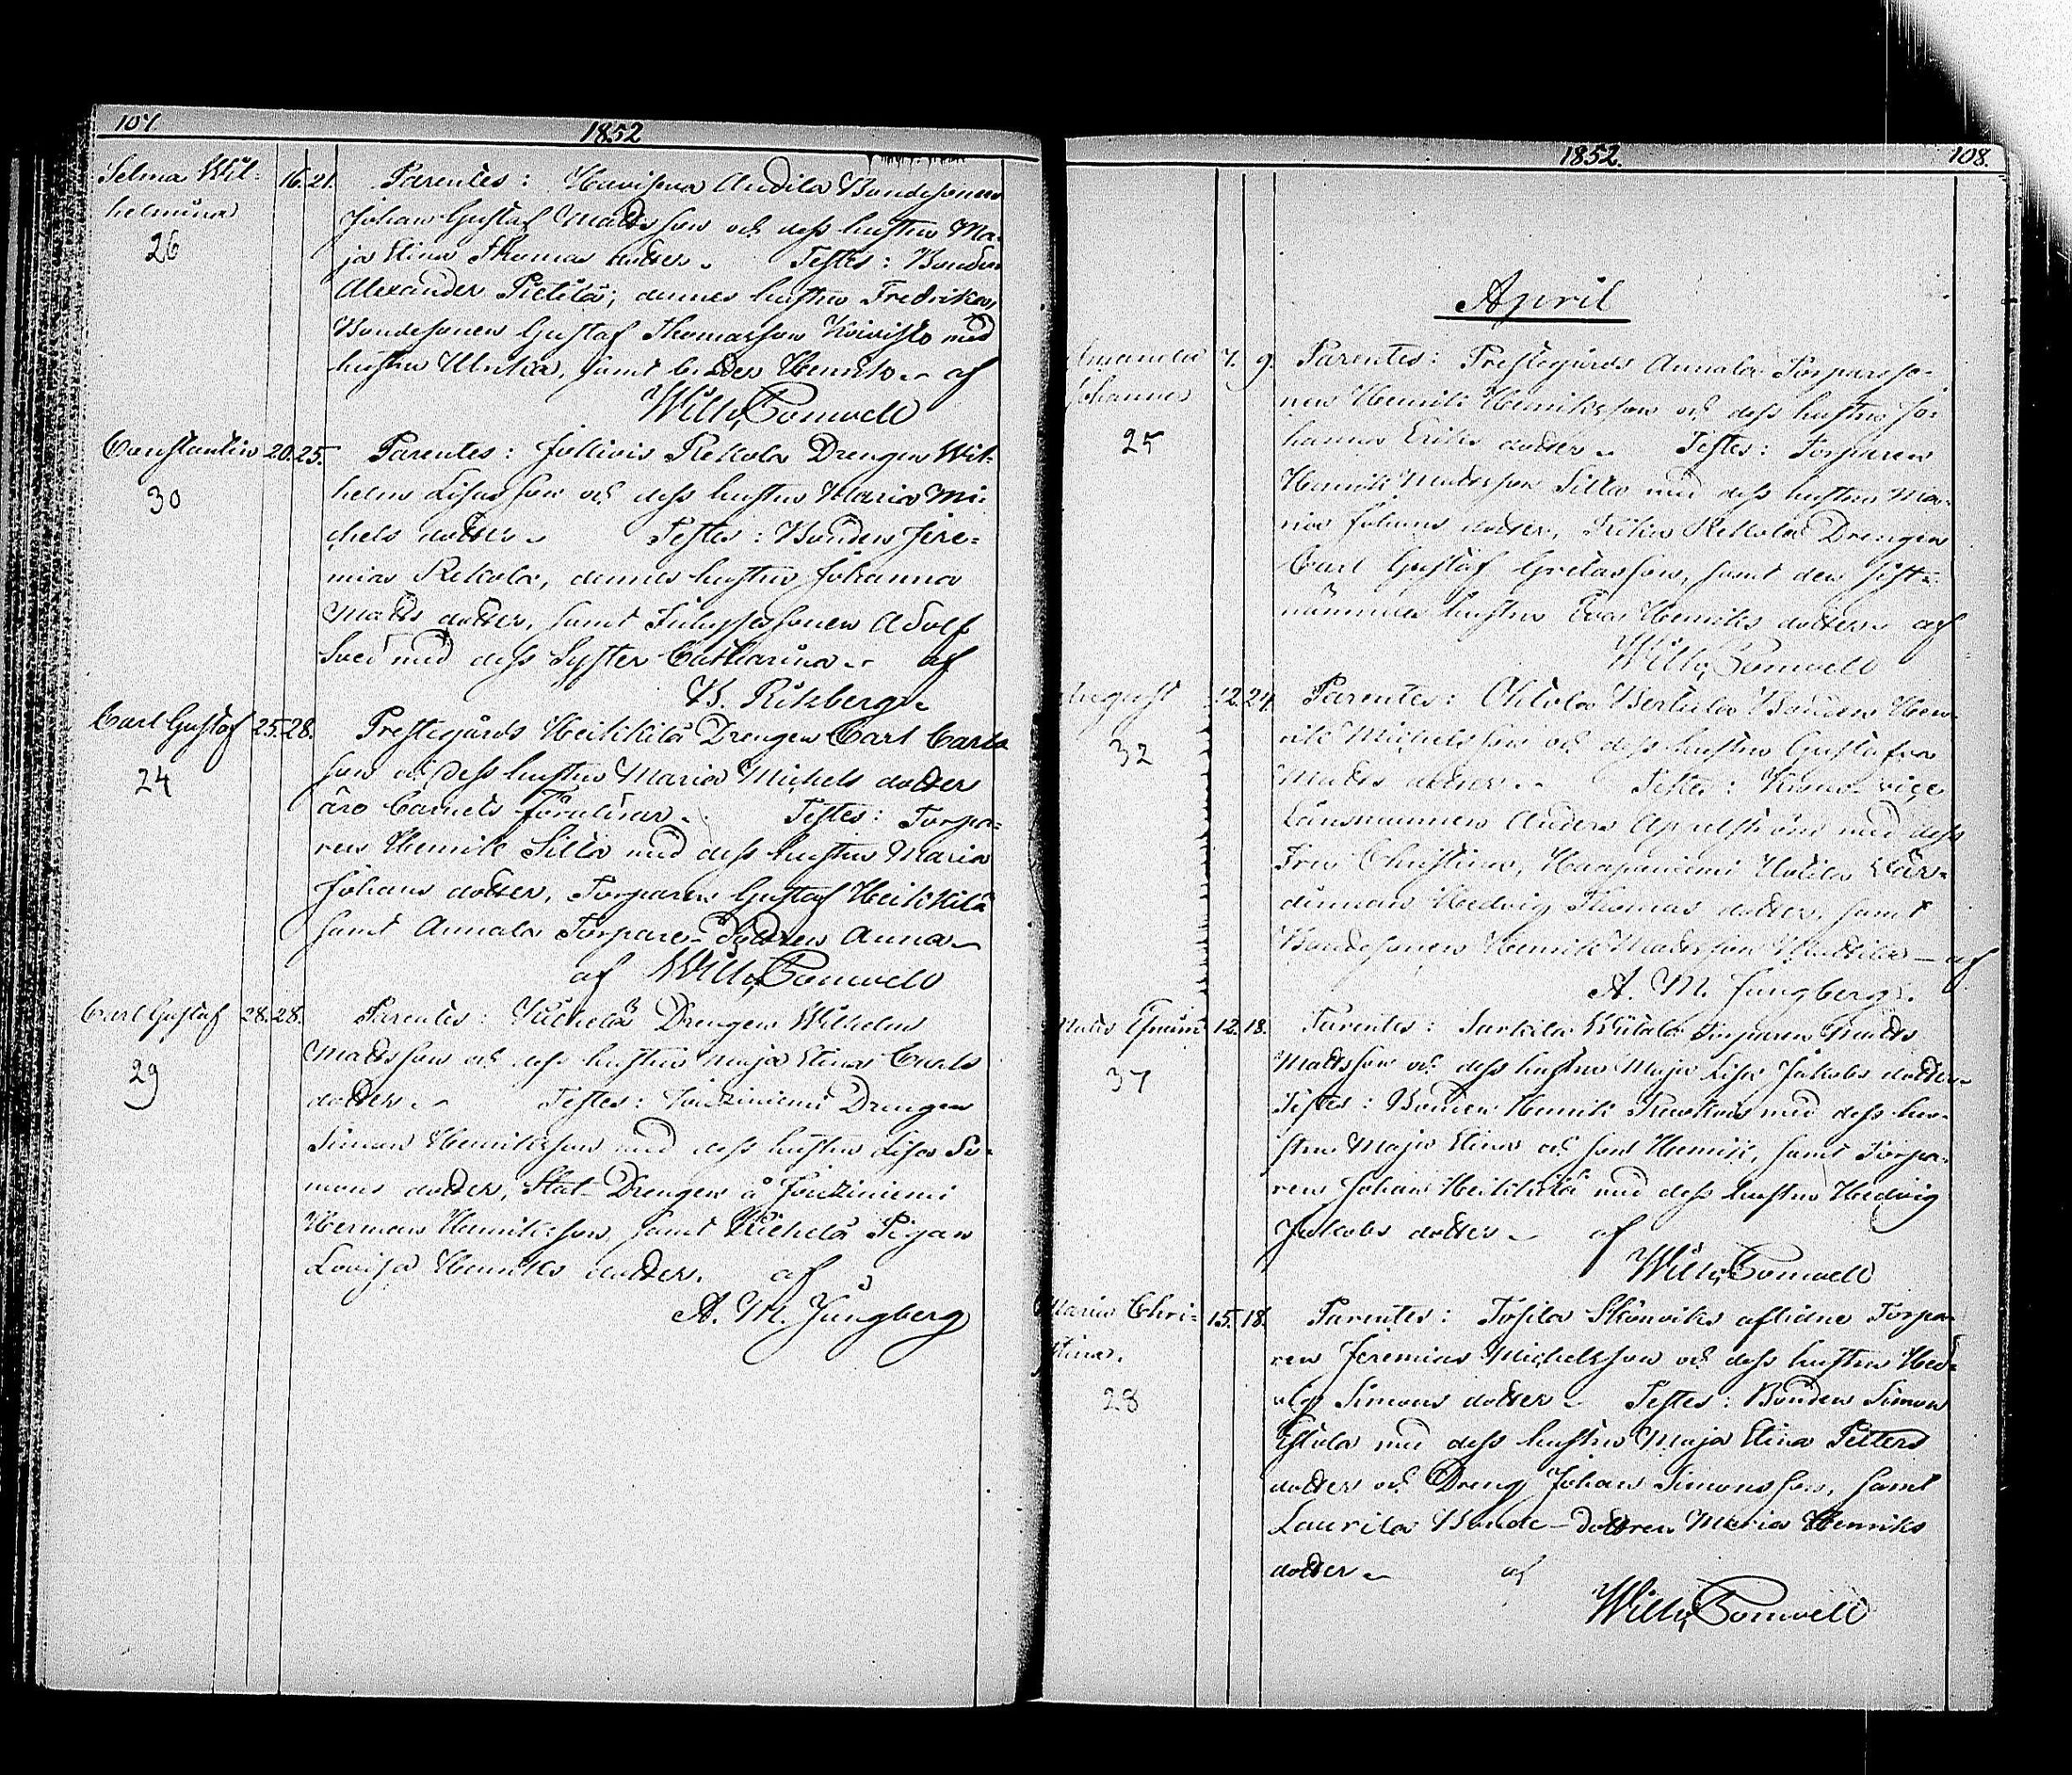 107.
1852
Selma Wil-
helmina
26
16. 21.
Parentes: Andila Bondesonen
Johan Gustaf Mattsson och dess hustru Ma-
ja Stina Thomas dotter. Testes: Bonden
Alexander Pietilä, dennes hustru Fredrika,
Bondesonen Gustaf Thomasson Koivisto med
hustru Ulrika, samt Henrik af
Wilh. Bomvell
Constantin 20. 25.
30
Parentes: Rekola Drengen Wil-
helm Lisasson och dess hustru Maria Mi-
chels dotter. Testes: Bonden Jere-
mias Rekola, dennes hustru Johanna
Matts dotter, samt Adolf
med dess Syster Catharina. af
Carl Gustaf 25. 28.
24
Prestegårds Heikkilä Drengen Carl Carls
son och dess hustru Maria Michels dotter
äro Barnets föräldrar. Testes: Torpa-
ren Henrik Silla med dess hustru Maria
Johans dotter, Torparen Gustaf Heikkilä
samt Annala Torpare-Dottren Anna
af Wilh. Bomvell
Carl Gustaf 28. 28.
29
Parentes: Drengen Wilhelm
Mattsson och dess hustru Maja Stina Carls
dotter. Testes: Drengen
Simon Henriksson med dess hustru Lisa Si-
mons dotter, Stat-Drengen å
Herman Henriksson, samt Pigan
Lovisa Henriks dotter. af
A. M. Jungberg
1852.
108.
April
Amanda
Johanna
25
7. 9.
Parentes: Prestegårds Annala Torpareso-
nen Henrik Henriksson och dess hustru Jo-
hanna Eriks dotter. Testes: Torparen
Henrik Mattsson Silla med dess hustru Ma-
ria Johans dotter, Rekola Drengen
Carl Gustaf Gretasson, samt den sist-
nämndes hustru Eva Henriks dotter. af
Wilh. Bomvell
August 12. 24.
32
Parentes: Ohtola Bertula Bonden Hen-
rik Michelsson och dess hustru Gustafva
Matts dotter. Testes: Krono-vice
Länsmannen Anders Appelström med dess
Fru Christina, Haapaniemi
Hedvig Thomas dotter, samt
Bondesonen Henrik Mattsson Anttila af
A. M. Jungberg.
Matts Efraim 12. 18.
37
Parentes: Torparen Matts
Mattsson och dess hustru Maja Lisa Jakobs dotter.
Testes: Bonden Henrik med dess hu-
stru Maja Stina och son Henrik, samt Torpa-
ren Johan Heikkilä med dess hustru Hedvig
Jakobs dotter. af
Wilh. Bomvell
Maria Chri-
stina.
28
15. 18.
Parentes: Skönviks aflidne Torpa-
ren Jeremias Michelsson och dess hustru Hed-
vig Simons dotter. Testes: Bonden Simon
med dess hustru Maja Stina Petters
dotter och Dreng Johan Simonsson, samt
Laurila Bonde-dottren Maria Henriks
dotter. af
Wilh. Bomvell